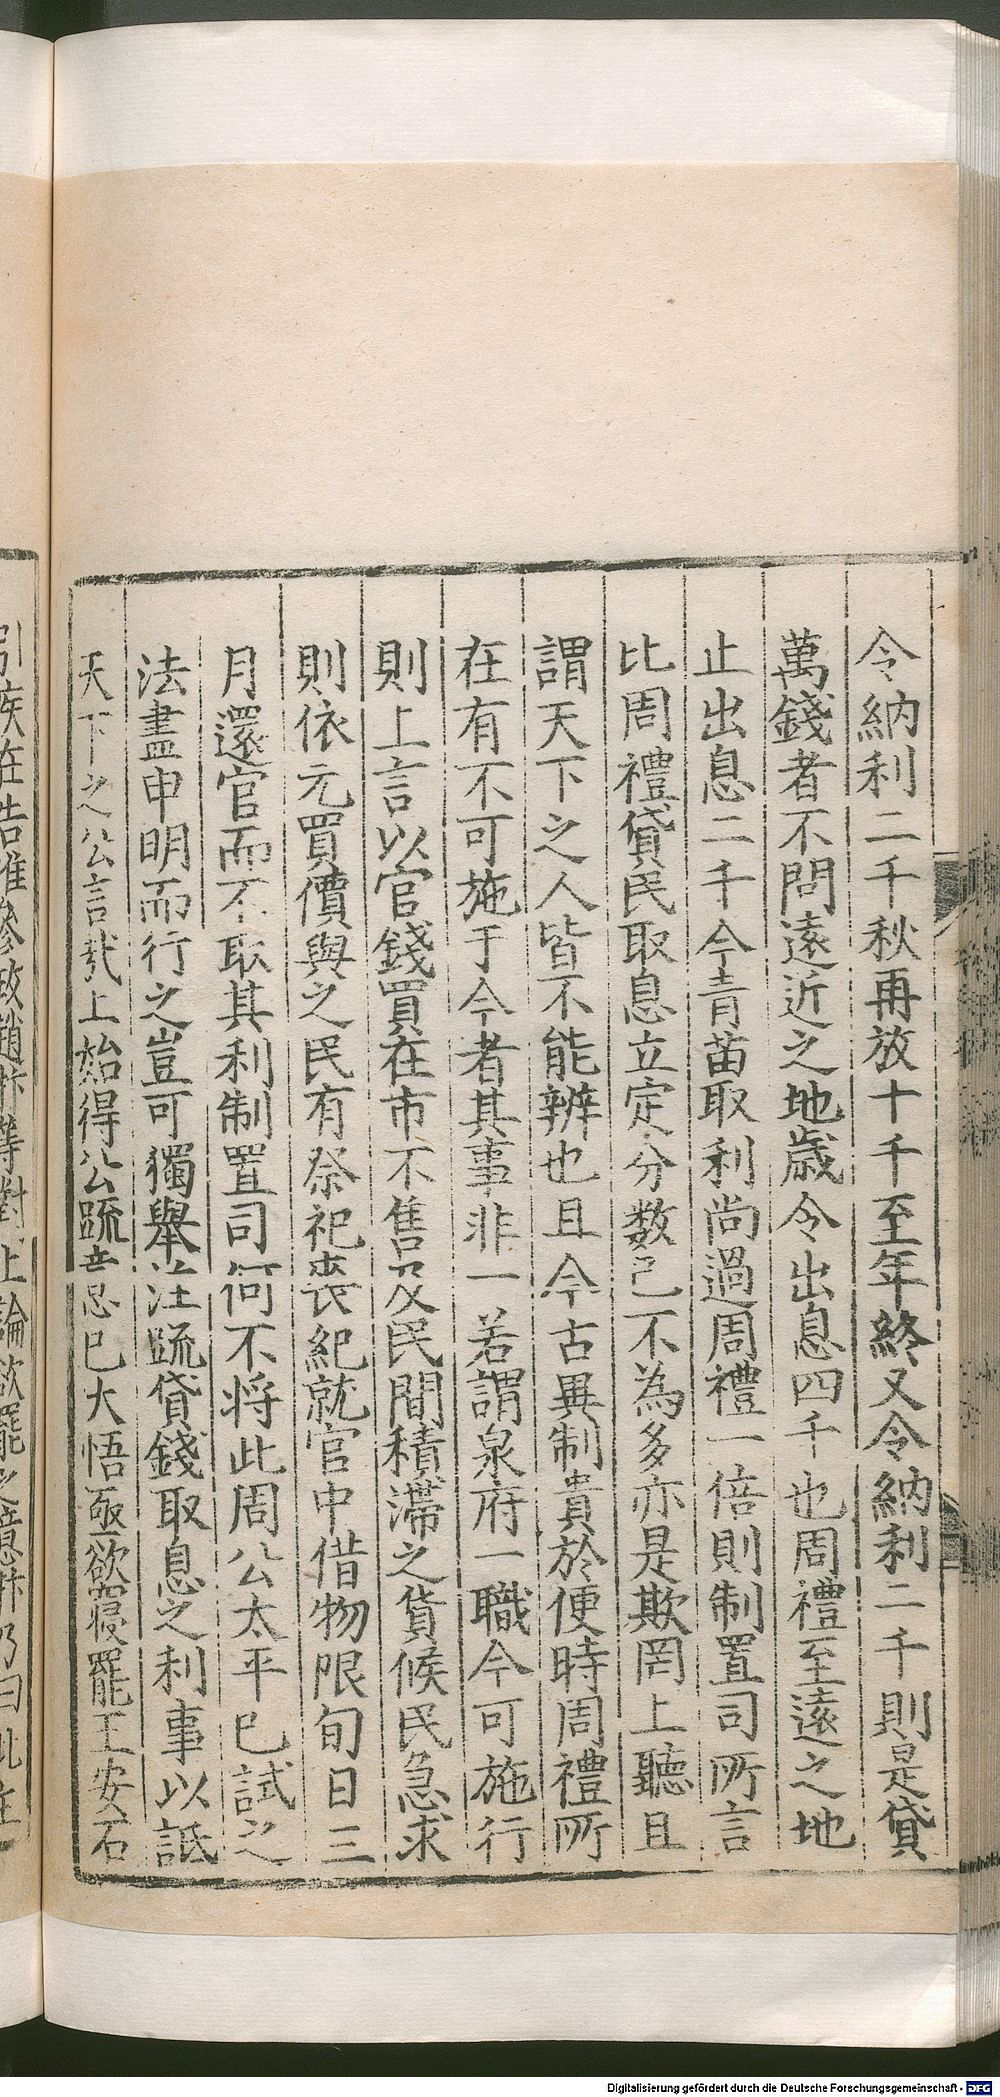 令納利二千秋再放十千至年終又令納利二千則是貸
萬錢者不問遠近之地歲令出息四千也周禮至遠之地
止出息二千今青苗取利尚過周禮一倍則制置司所言
比周禮貸民取息立定分数已不為多亦是欺罔上聽且
謂天下之人皆不能辨也且今古異制貴於便時周禮所
在有不可施于今者其事非一若謂泉府一職今可施行
則上言以官錢買在市不售及民間積滯之貨候民急求
則依元買價與之民有祭祀喪紀就官中借物限旬日三
月還官而不取其利制置司何不将此周公太平已試之
法盡申明而行之豈可獨舉注疏貸錢取息之利事以詆
天下之公言哉上始得公疏意已大悟亟欲寢罷王安石
引疾在告准參政趙抃等對上論欲罷之意抃乃曰此在
Digitalisierung gefördert durch die Deutsche Forschungsgemeinschaft - DFG